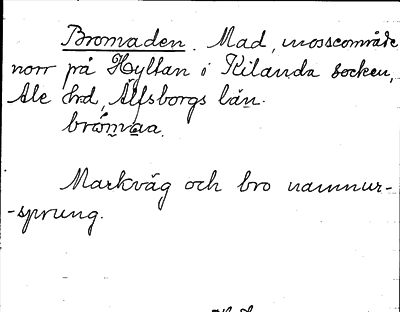 Bromaden. Mad, mosseområde
norr på Hyltan i Kilanda socken,
Ale hd, Älfsborgs län.
Markväg och bro namnur-
-sprung.